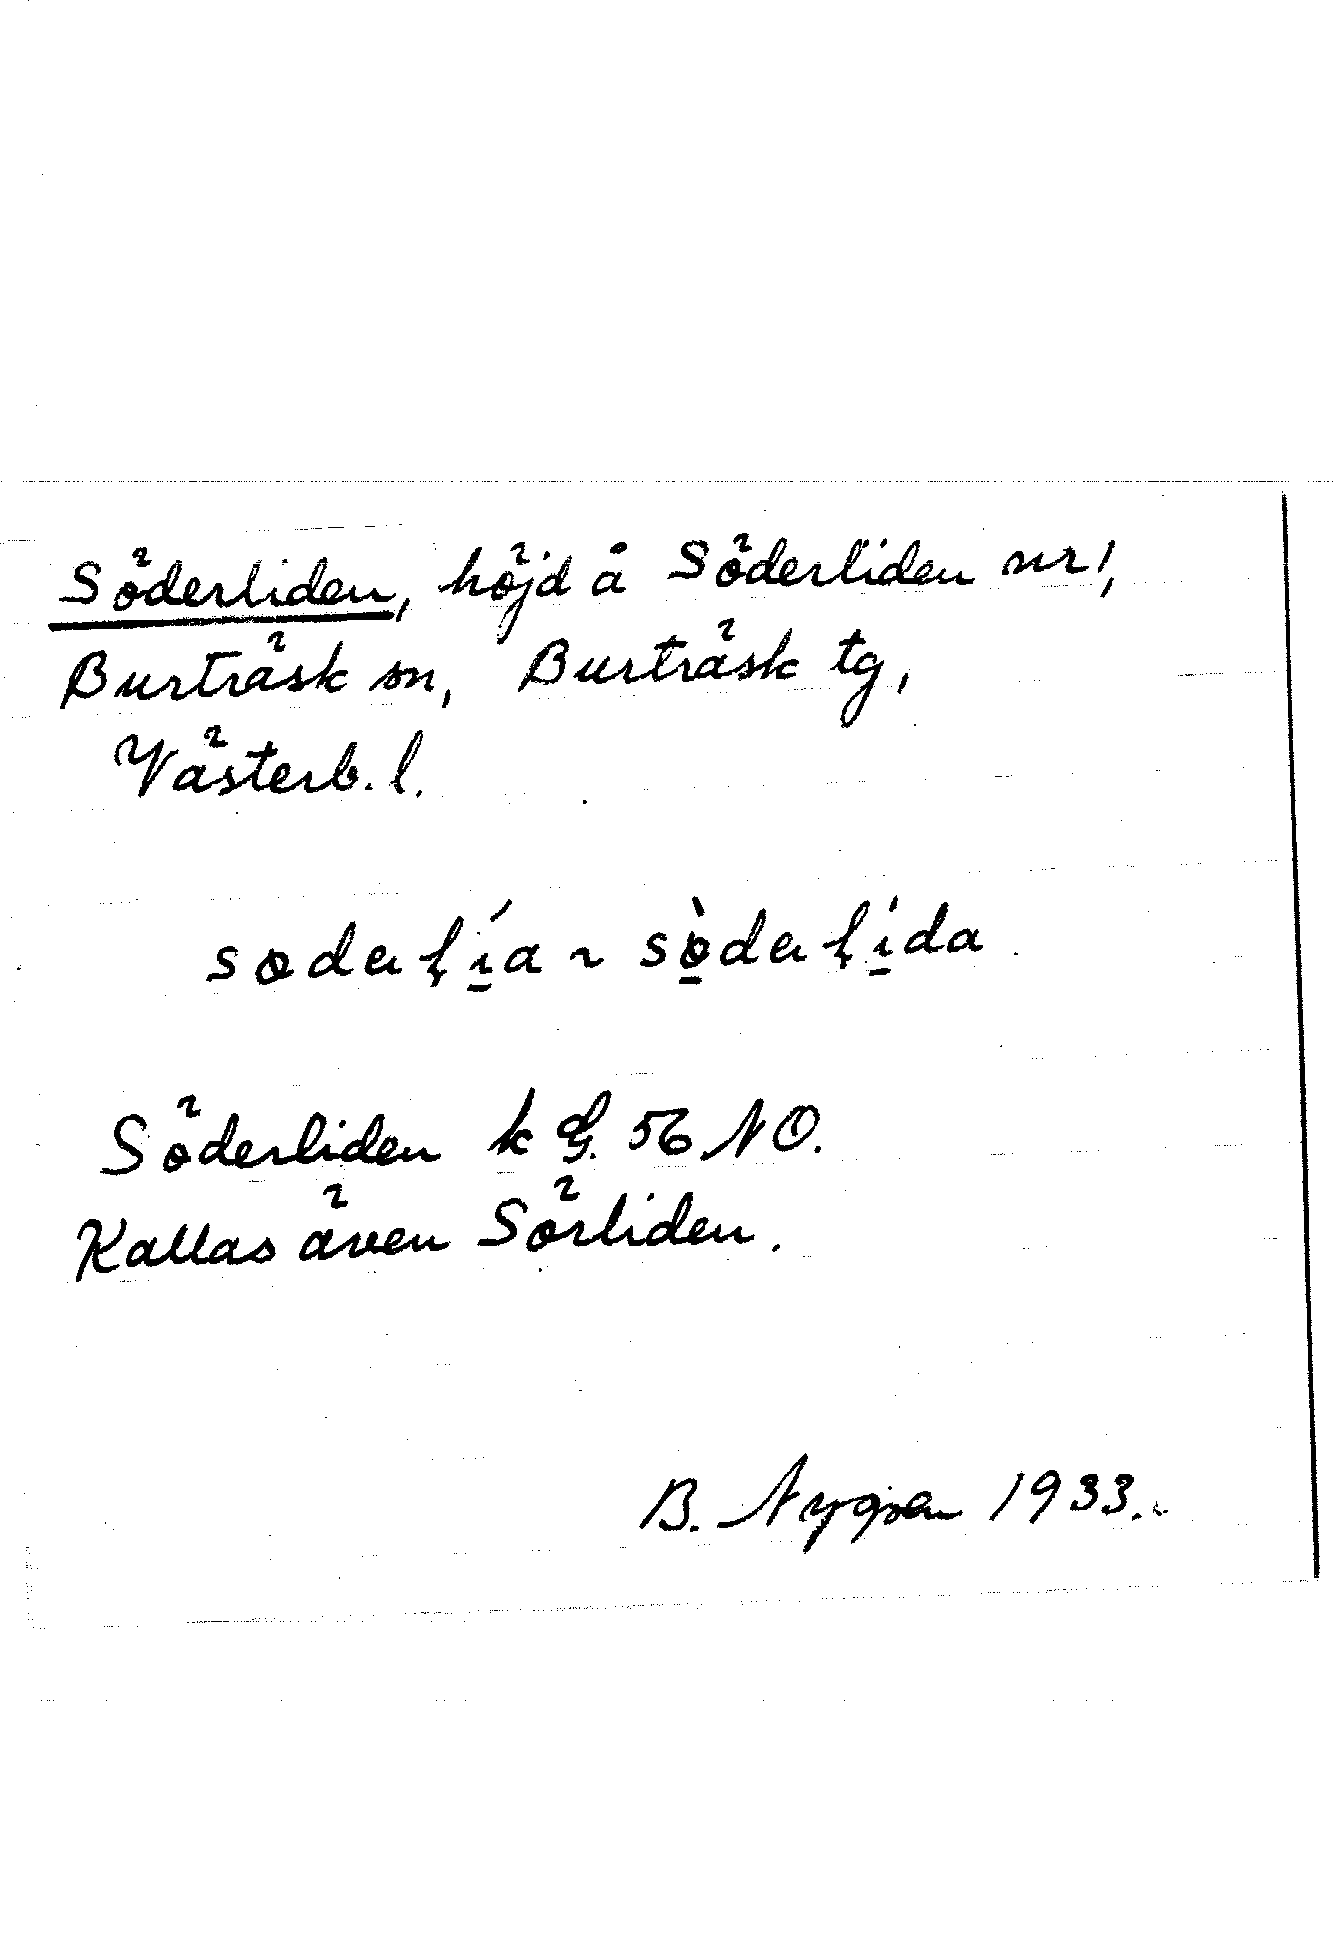 Söderliden, höjd å Söderliden nr 1,
Burträsk sn, Burträsk tg,
Västerb. l.
Söderliden k G. 56 NO.
Kallas även Sörliden.
B. Nygren 1933.